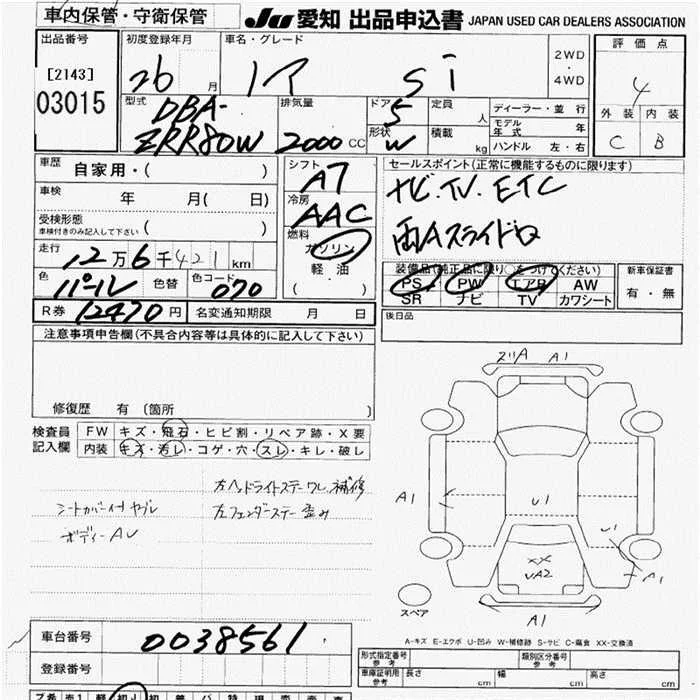 車内保管・守衛保管
JU 愛知 出品申込書 JAPAN USED CAR DEALERS ASSOCIATION
出品番号
[2143]
03015
初度登録年月
26 月
車名・グレード
ノア Si
2WD
・
4WD
評価点
4
外装 内装
C B
型式
DBA-
ZRR80W
排気量
2000 cc
ドア
5
形状
W
定員
人
積載
kg
ディーラー・並行
モデル
年式
年
ハンドル 左・右
車歴
自家用・( )
車検
年 月( 日)
受検形態
車検付きのみ記入して下さい ( )
走行
12万6千421km
色
パール
色替
色コード
070
R券 12470円
名変通知期限 月 日
シフト
A7
冷房
AAC
燃料
ガソリン
軽油
( )
セールスポイント(正常に機能するものに限ります)
ナビ.TV.ETC
両Aスライドロ
装備品(純正品に限り○をつけてください)
PS PW エアB AW
SR ナビ TV カワシート
新車保証書
有・無
後日品
注意事項申告欄(不具合内容等は具体的に記入して下さい)
修復歴 有(箇所 )
検査員
記入欄
FW キズ・飛石・ヒビ割・リペア跡・X要
内装 キズ・汚レ・コゲ・穴・スレ・キレ・破レ
左ヘッドライトステーワレ補修
シートカバー付ヤブレ
左フェンダーステー歪み
ボディーAU
ズリA A1
A1
U1
U1
XX
UA2
A1
スペア
A1
A-キズ E-エクボ U-凹み W-補修跡 S-サビ C-腐食 XX-交換済
車台番号
0038561
登録番号
形式指定番号
参考
類別区分番号
参考
車庫証明用
参考
長さ cm
幅 cm
高さ cm